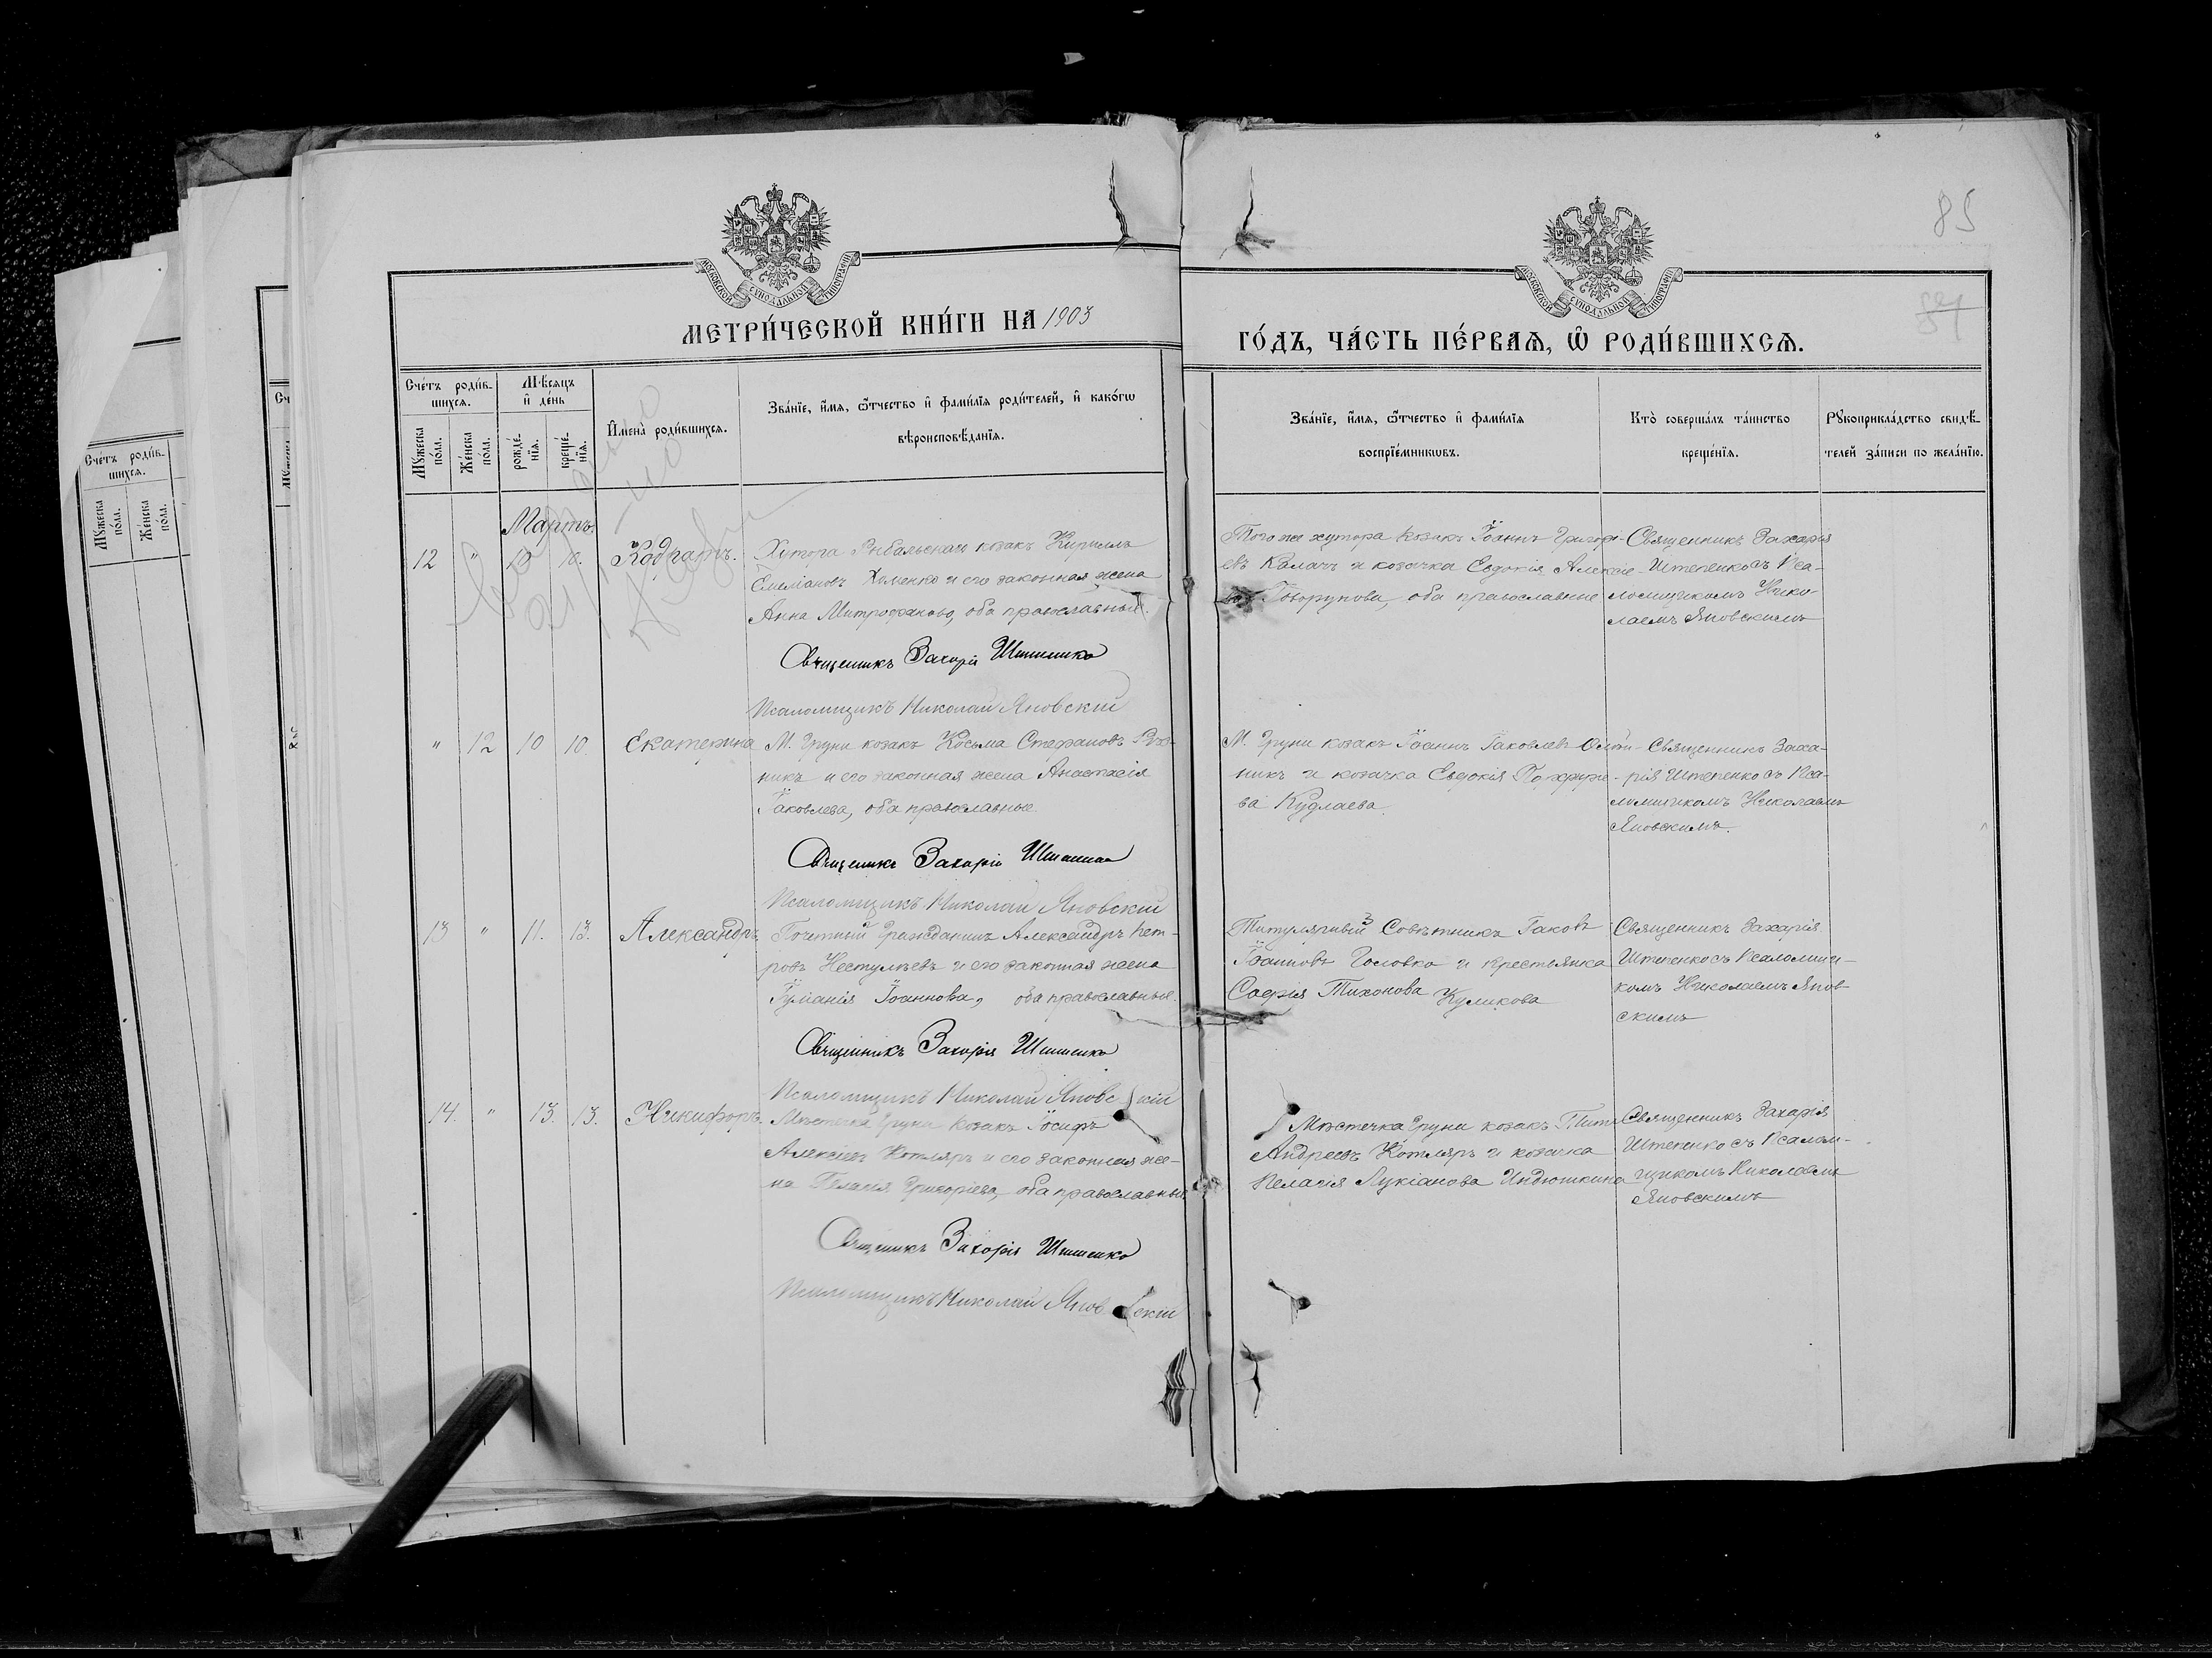 85
МОСКОВСКОЙ СУНОДАЛЬНОЙ ТИПОГРАФІИ
МОСКОВСКОЙ СУНОДАЛЬНОЙ ТИПОГРАФІИ
МЕТРИ́ЧЕСКОЙ КНИ́ГИ НА 1903
ГО́ДЪ, ЧА́СТЬ ПЕ́РВАѦ, Ѡ҆ РОДИ́ВШИХСѦ.
Сче́тъ роди́в-
шихсѧ.
Мѣ́сѧцъ
и҆ де́нь
Мꙋ́жеска
по́ла.
Же́нска
по́ла.
рожде́-
нїѧ.
креще́-
нїѧ.
И҆мена̀ роди́вшихсѧ.
Зва́нїе, и҆́мѧ, ѻ҆́тчество и҆ фами́лїѧ роди́телей, и҆ како́гѡ
вѣроисповѣ́данїѧ.
Зва́нїе, и҆́мѧ, ѻ҆́тчество и҆ фами́лїѧ
воспрїе́мникѡвъ.
Кто̀ соверша́лъ та́инство
креще́нїѧ.
Рꙋкоприкла́дство свидѣ́-
телей за́писи по жела́нїю.
Сче́тъ роди́в-
шихсѧ.
Мꙋ́жеска
по́ла.
Же́нска
по́ла.
Мартъ.
12 " 10 10. Кодратъ. Хутора Рыбальскаго козакъ Кириллъ
Емеліановъ Хоменко и его законная жена
Анна Митрофанова, оба православные.
Священникъ Захарія Штепенко
Псаломщикъ Николай Яновскій
Того же хутора козакъ Іоаннъ Григорі-
евъ Калачъ и козачка Евдокія Алексіе-
Говорунова, оба православные
Священникъ Захарія
Штепенко съ Пса-
ломщикомъ Нико-
лаемъ Яновскимъ
" 12 10 10. Екатерина М. Груни козакъ Косьма Стефановъ
никъ и его законная жена Анастасія
Іаковлева, оба православные.
Священникъ Захарія Штепенко
Псаломщикъ Николай Яновскій
М. Груни козакъ Іоаннъ Іаковлевъ
никъ и козачка Евдокія Порфирі-
ва Кудлаева.
Священникъ Заха-
рія Штепенко съ Пса-
ломщикомъ Николаемъ
Яновскимъ.
13 " 11. 13. Александръ Почетный Гражданинъ Александръ Пет-
ровъ Нестулѣевъ и его законная жена
Іуліанія Іоаннова, оба православные.
Священникъ Захарія Штепенко
Псаломщикъ Николай Яновскій
Титулярный Совѣтникъ Іаковъ
Іоанновъ Головко и крестьянка
Софія Тихонова Куликова
Священникъ Захарія
Штепенко съ Псаломщи-
комъ Николаемъ Янов-
скимъ
14. " 13. 13. Никифоръ. Мѣстечка Груни козакъ Іосифъ
Алексіевъ Котляръ и его законная же-
на Пелагія Григоріева, оба православные
Священникъ Захарія Штепенко
Псаломщикъ Николай Яновскій
Мѣстечка Груни козакъ Титъ
Андреевъ Котляръ и козачка
Пелагія Лукіанова Индюшкина
Священникъ Захарія
Штепенко съ Псалом-
щикомъ Николаемъ
Яновскимъ